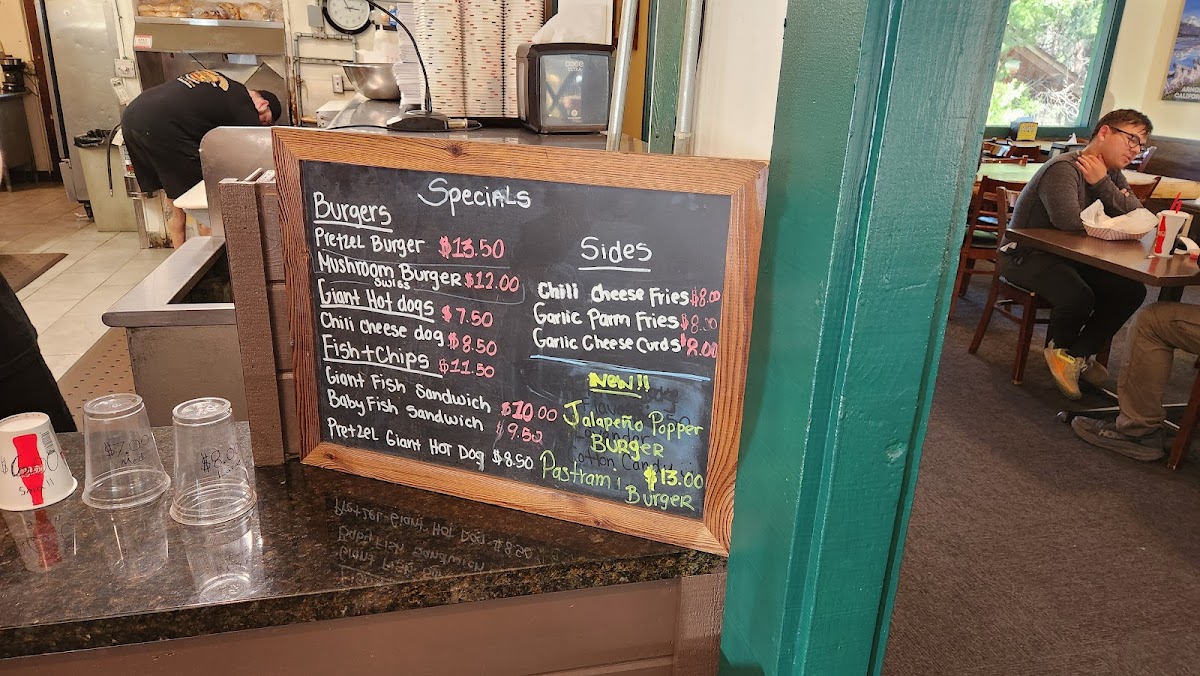 Specials
Burgers
Pretzel Burger $13.50
Mushroom Burger $12.00
Swiss
Giant Hot dogs $7.50
Chili cheese dog $8.50
Fish+Chips $11.50
Giant Fish Sandwich $10.00
Baby Fish Sandwich $9.50
Pretzel Giant Hot Dog $8.50
Sides
Chili Cheese Fries $8.00
Garlic Parm Fries $8.50
Garlic Cheese Curds $8.00
New!!
Jalapeño Popper
Burger
Pastrami $13.00
Burger